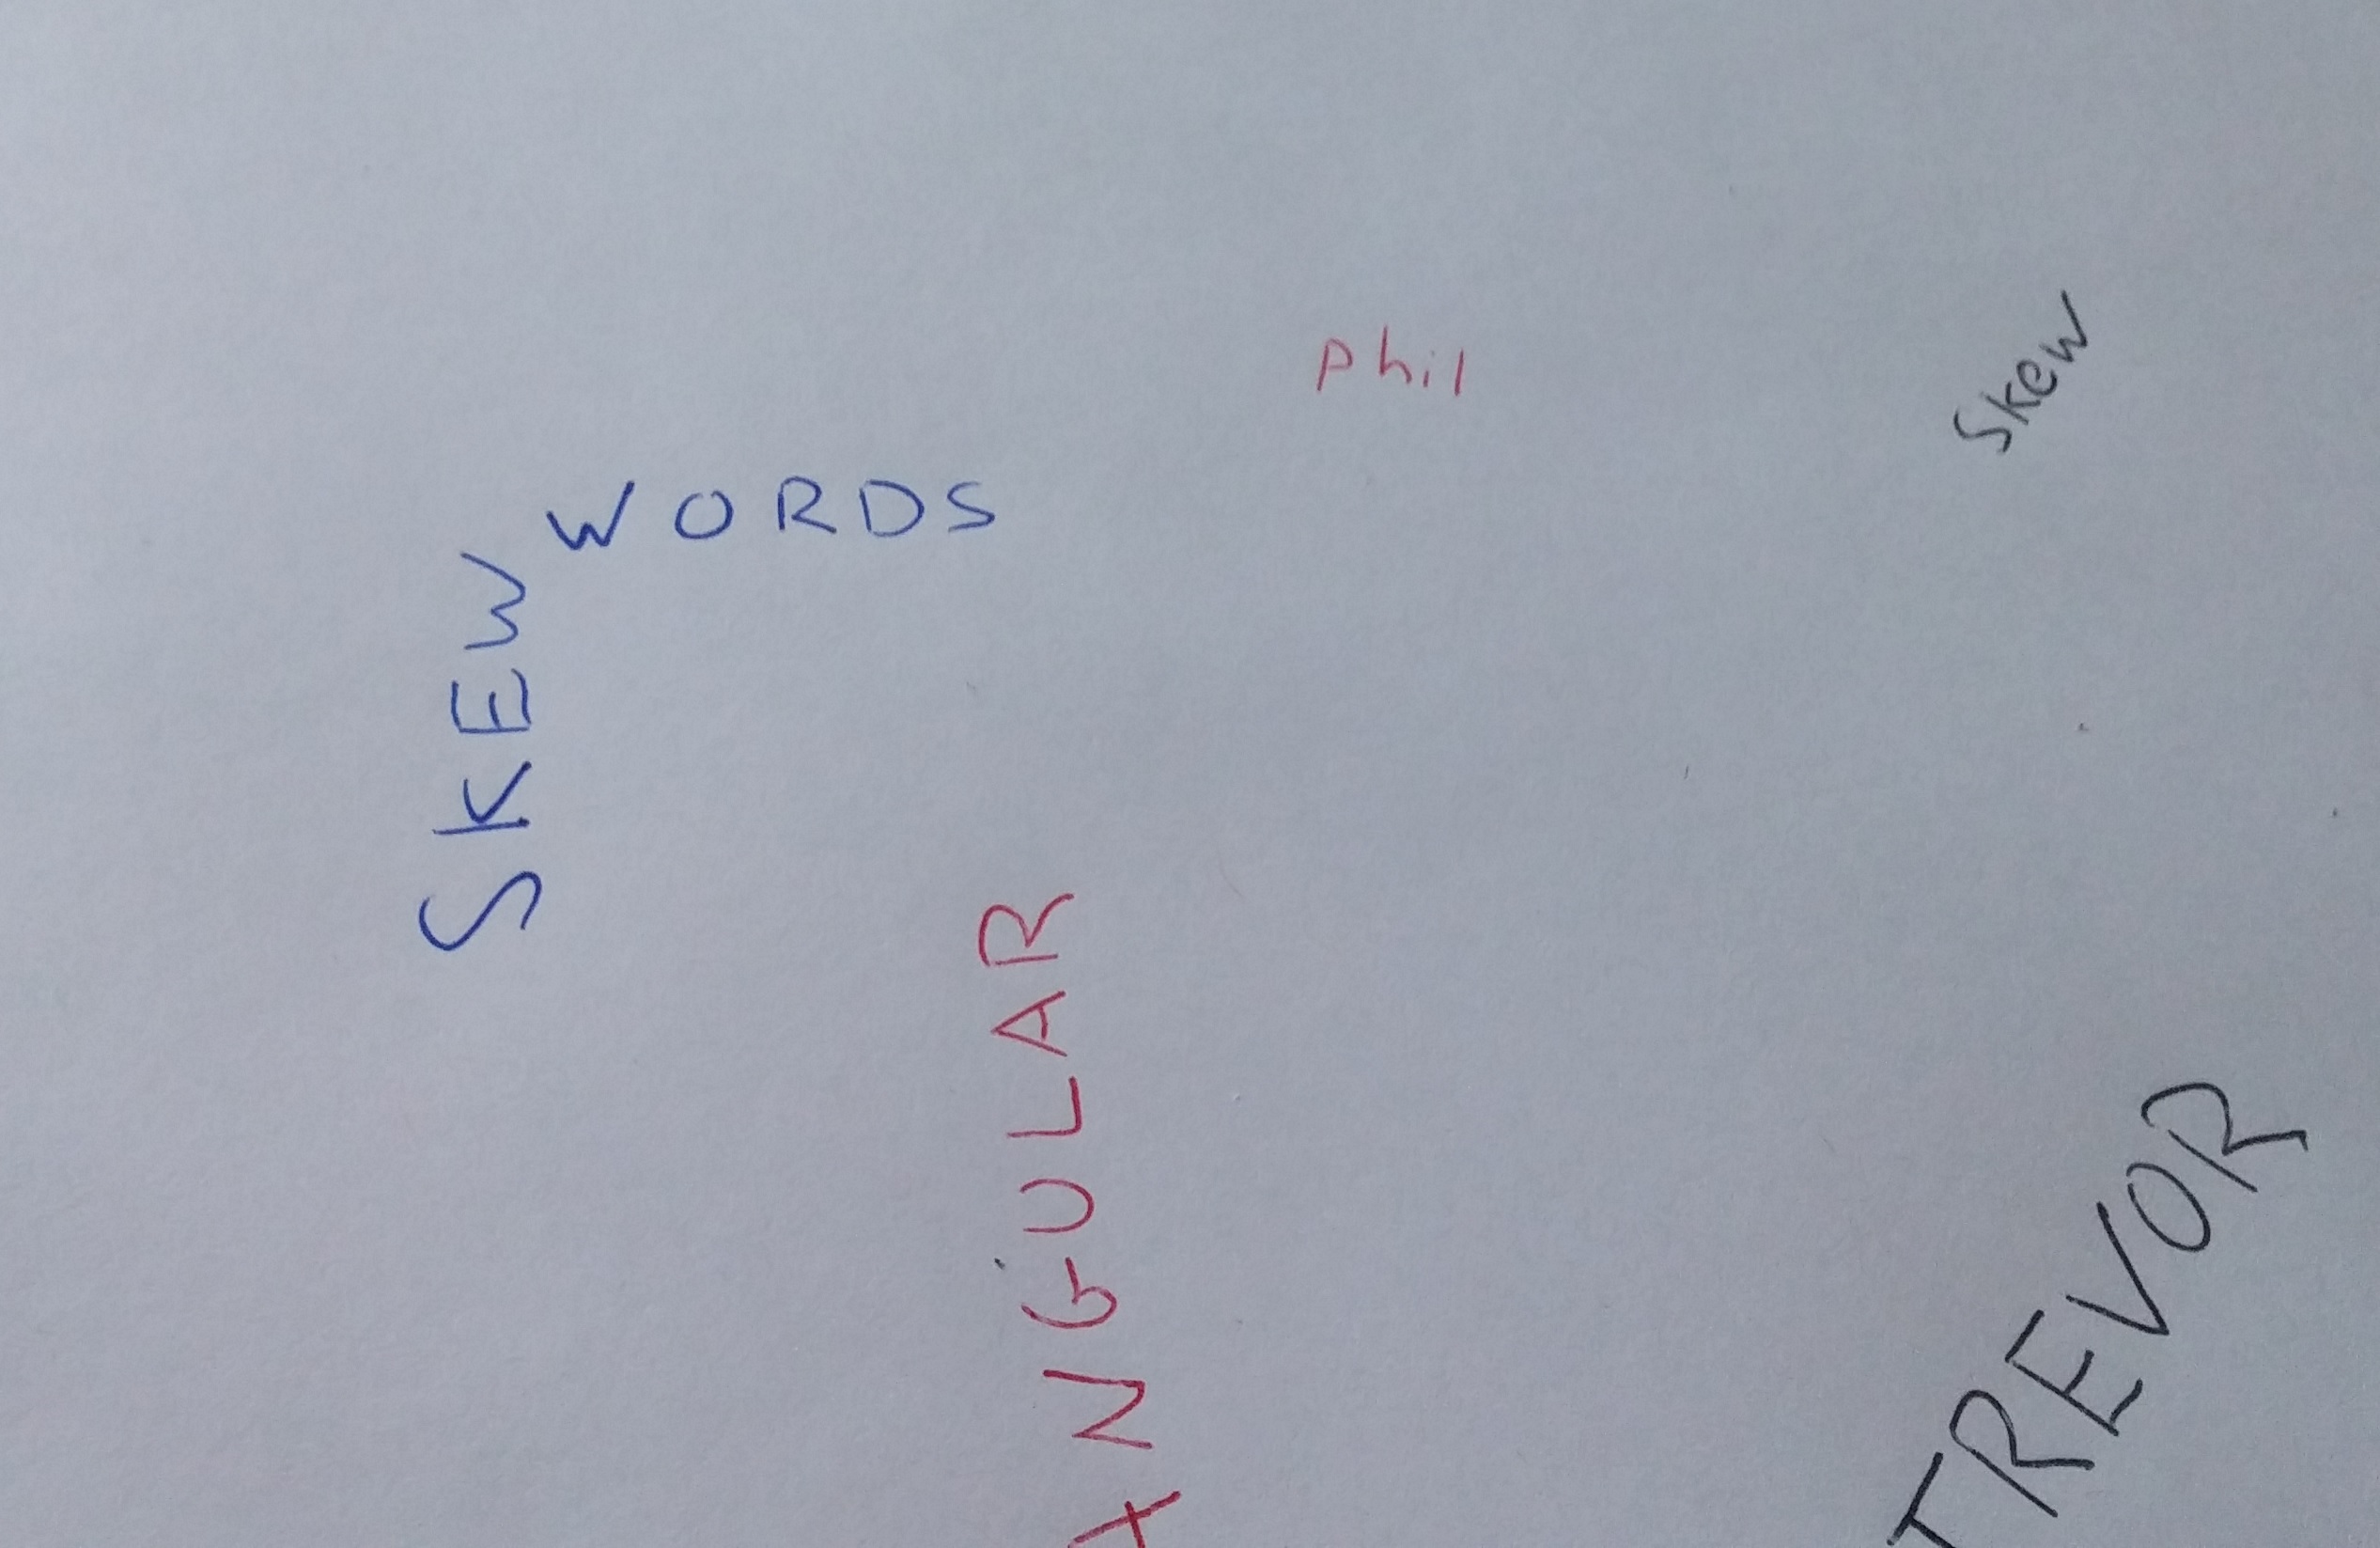 SKEW
WORDS
phil
skew
ANGULAR
TREVOR